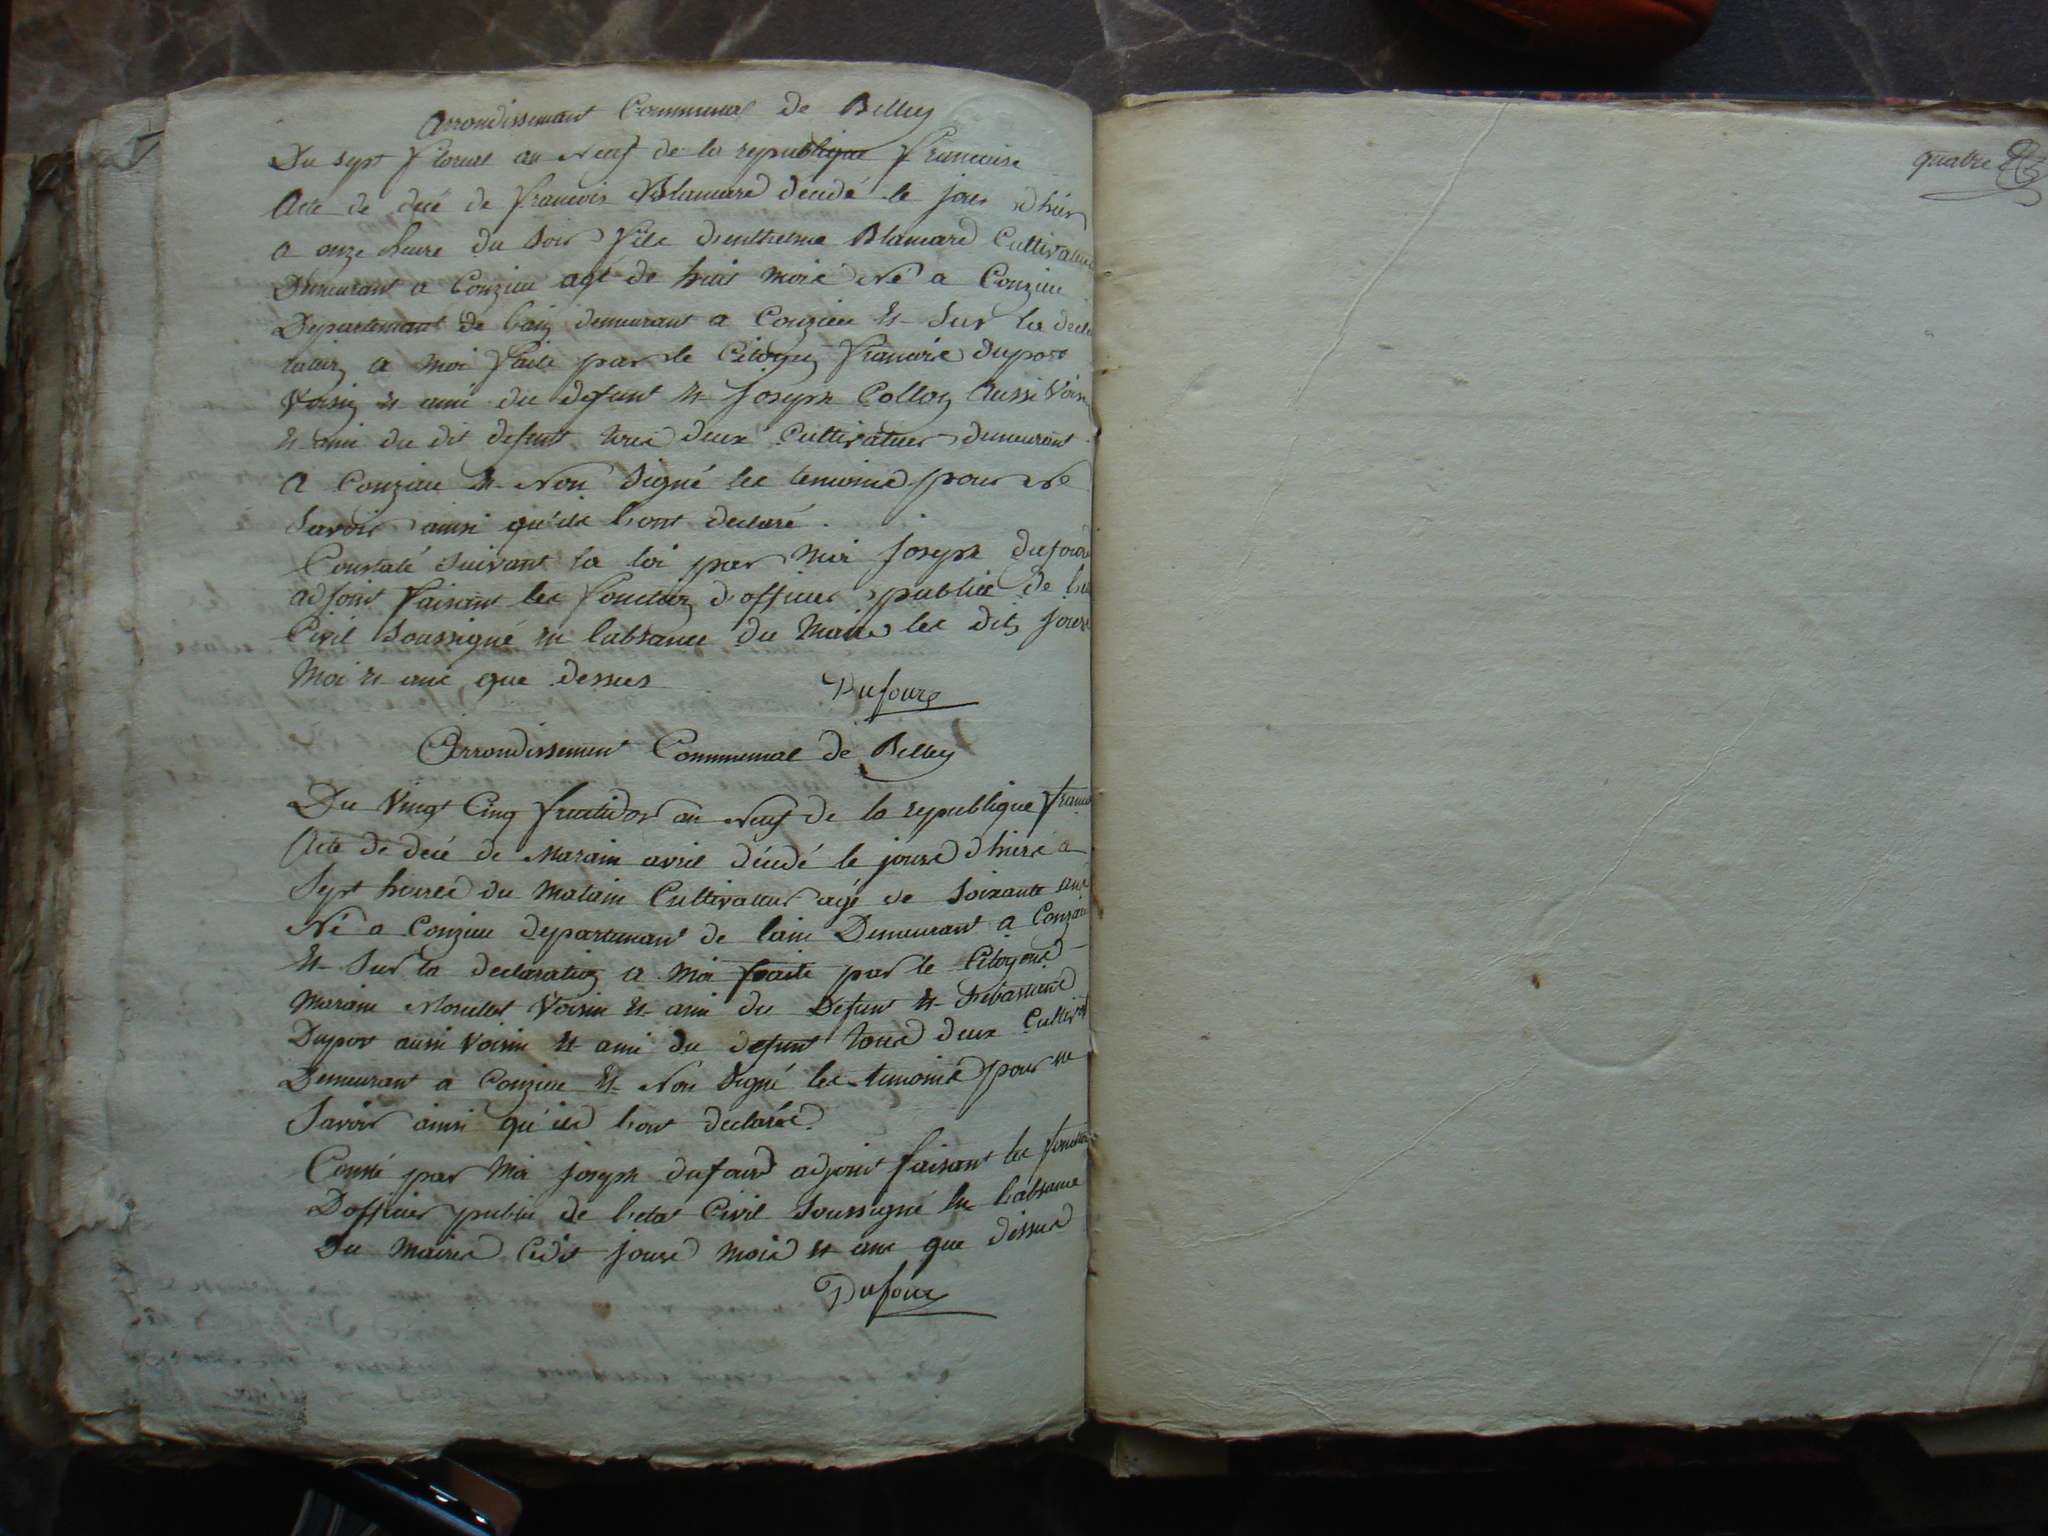 Arrondissement Communal de Belley
Du sept floreal an Neuf de la republique francaise
Acte de decé de francois Blancard décidé le jour d'hier
a onze heure du soir fils d'enthelme Blancard Cultivateur
Demeurant a Conzieu agé de huit mois Né a Conzieu
Departemant de lain demeurant a Conzieu Et Sur la decla
ration a moi faite par le Citoyen francois Dupor
Voisin Et ami du defunt Et joseph Collon Aussi Voisin
Et ami du dit defunt tous deux Cultivateur demeurant
A Conzieu Et Non Signé les temoins pour Ne
Savoir ainsi qu'ils l'ont declaré.
Constaté Suivant la loi par Moi joseph dufour
adjoint faisant les fonction d'officier public de
Civil Soussigné En l'absance du Maire les dits jours
Moi Et ans que dessus
Dufour
Arrondissement Communal de Belley
Du Vingt Cinq fructidor an Neuf de la republique
Acte de decé de Marain avril décédé le jours d'hiers a
Sept heures du Matain Cultivateur agé de Soixante ans
Né a Conzieu departemant de lain Demeurant a Conzieu
Et Sur la declaration a Moi faite par le Citoyens
Marain Voisin Et ami du Defunt Et Sebastiens
Dupor aussi Voisin Et ami du defunt tous deux
Demeurant a Conzieu Et Non Signé les temoins pour ne
Savoir ainsi qu'ils l'ont declarés.
par Moi joseph dufour adjoint faisant les
D'officier public de letat Civil Soussigné En l'absance
Du Maires Cedit jours mois Et ans que dessus
Dufour
quatre